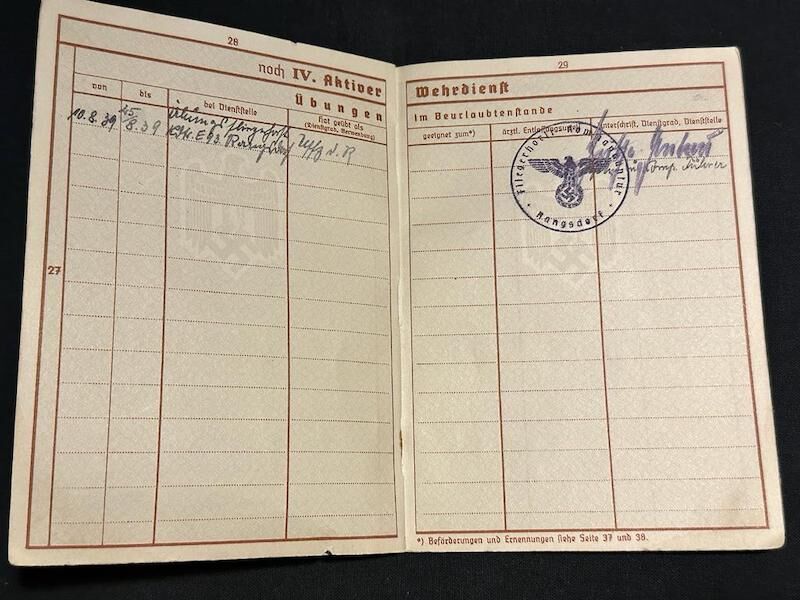 28
noch IV. Aktiver
Übungen
von
bis
bei Dienststelle
Hat geübt als
(Dienstgrad, Verwendung)
10.8.39
25/8.39
Rangsdorf
Uffz d. R
27
29
Wehrdienst
im Beurlaubtenstande
geeignet zum*)
ärztl. Entlassungsunters.
Unterschrift, Dienstgrad, Dienststelle
Fliegerhorst-Kommandantur
Rangsdorf
Führer
*) Beförderungen und Ernennungen siehe Seite 37 und 38.